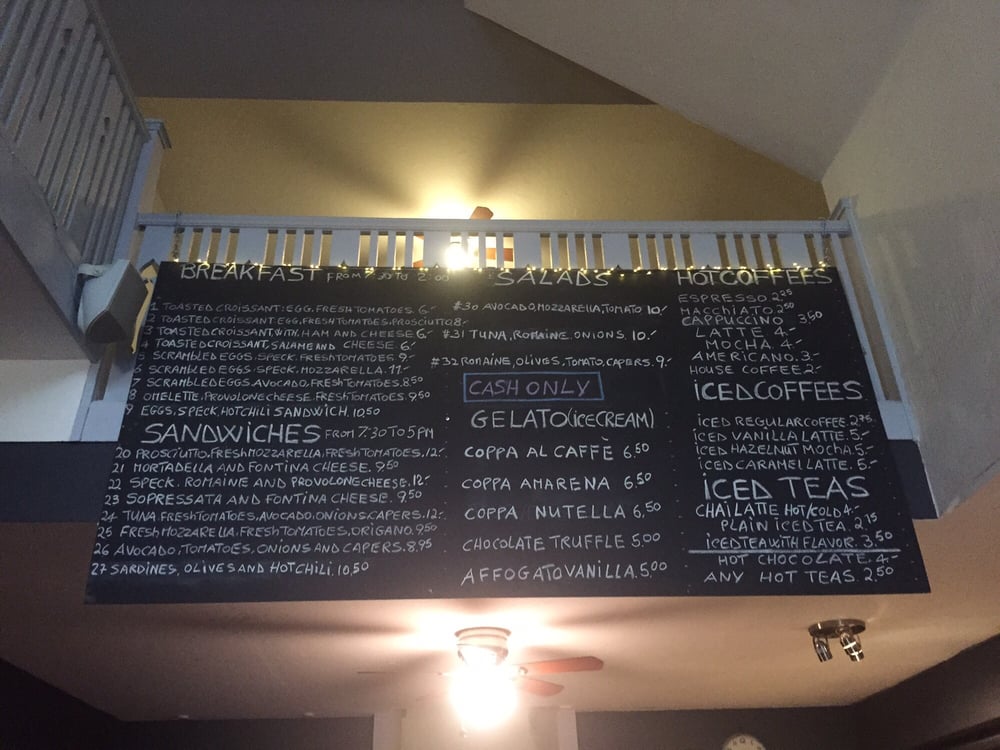 BREAKFAST FROM 7:30 TO 2:00
1 TOASTED CROISSANT: EGG, FRESH TOMATOES. 6.-
2 TOASTED CROISSANT: EGG, FRESH TOMATOES, PROSCIUTTO 8.-
3 TOASTED CROISSANT, WITH HAM AND CHEESE 6.-
4 TOASTED CROISSANT, SALAME AND CHEESE. 6.-
5 SCRAMBLED EGGS, SPECK, FRESH TOMATOES. 9.-
6 SCRAMBLED EGGS, SPECK, MOZZARELLA. 11.-
7 SCRAMBLED EGGS, AVOCADO, FRESH TOMATOES. 8.50
8 OMELETTE, PROVOLONE CHEESE, FRESH TOMATOES. 9.50
9 EGGS, SPECK, HOT CHILI SANDWICH. 10,50
SANDWICHES FROM 7:30 TO 5 PM
20 PROSCIUTTO, FRESH MOZZARELLA, FRESH TOMATOES. 12.-
21 MORTADELLA AND FONTINA CHEESE. 9.50
22 SPECK, ROMAINE AND PROVOLONE CHEESE. 12.-
23 SOPRESSATA AND FONTINA CHEESE. 9,50
24 TUNA FRESH TOMATOES, AVOCADO, ONIONS, CAPERS. 12.-
25 FRESH MOZZARELLA, FRESH TOMATOES, ORIGANO. 9.50
26 AVOCADO, TOMATOES, ONIONS AND CAPERS. 8.95
27 SARDINES, OLIVES AND HOT CHILI. 10,50
SALADS
#30 AVOCADO, MOZZARELLA, TOMATO 10.-
#31 TUNA, ROMAINE, ONIONS, 10.-
#32 ROMAINE, OLIVES, TOMATO, CAPERS. 9.-
CASH ONLY
GELATO (iceCREAM)
COPPA AL CAFFÈ 6.50
COPPA AMARENA 6.50
COPPA NUTELLA 6.50
CHOCOLATE TRUFFLE 5.00
AFFOGATO VANILLA. 5.00
HOT COFFEES
ESPRESSO 2.25
MACCHIATO 2.50
CAPPUCCINO 3.50
LATTE 4.-
MOCHA. 4.-
AMERICANO. 3.-
HOUSE COFFEE 2.-
iCED COFFEES
ICED REGULAR COFFEE. 2.75
ICED VANILLA LATTE. 5.-
ICED HAZELNUT MOCHA. 5.-
ICED CARAMEL LATTE. 5.-
iCED TEAS
CHAI LATTE HOT/COLD 4.-
PLAIN ICED TEA. 2,15
ICED TEA WITH FLAVOR. 3,50
HOT CHOCOLATE. 4.-
ANY HOT TEAS. 2.50